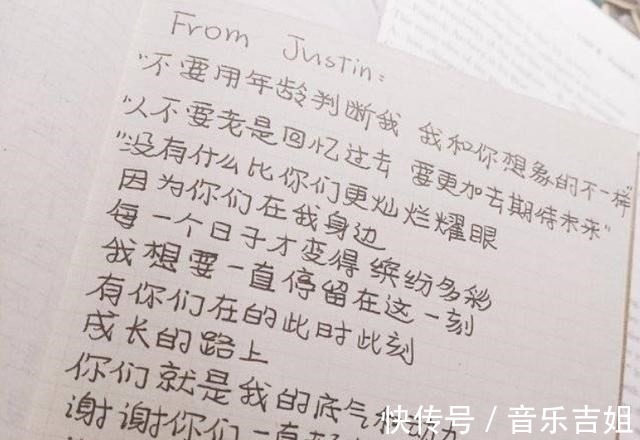 From Justin:
"不要用年龄判断我 我和你想象的不一样"
"人不要老是回忆过去 要更加去期待未来"
"没有什么比你们更灿烂耀眼
因为你们在我身边
每一个日子才变得缤纷多彩
我想要一直停留在这一刻
有你们在的此时此刻
成长的路上
你们就是我的底气
谢谢你们一直
快传号 / 音乐吉姐